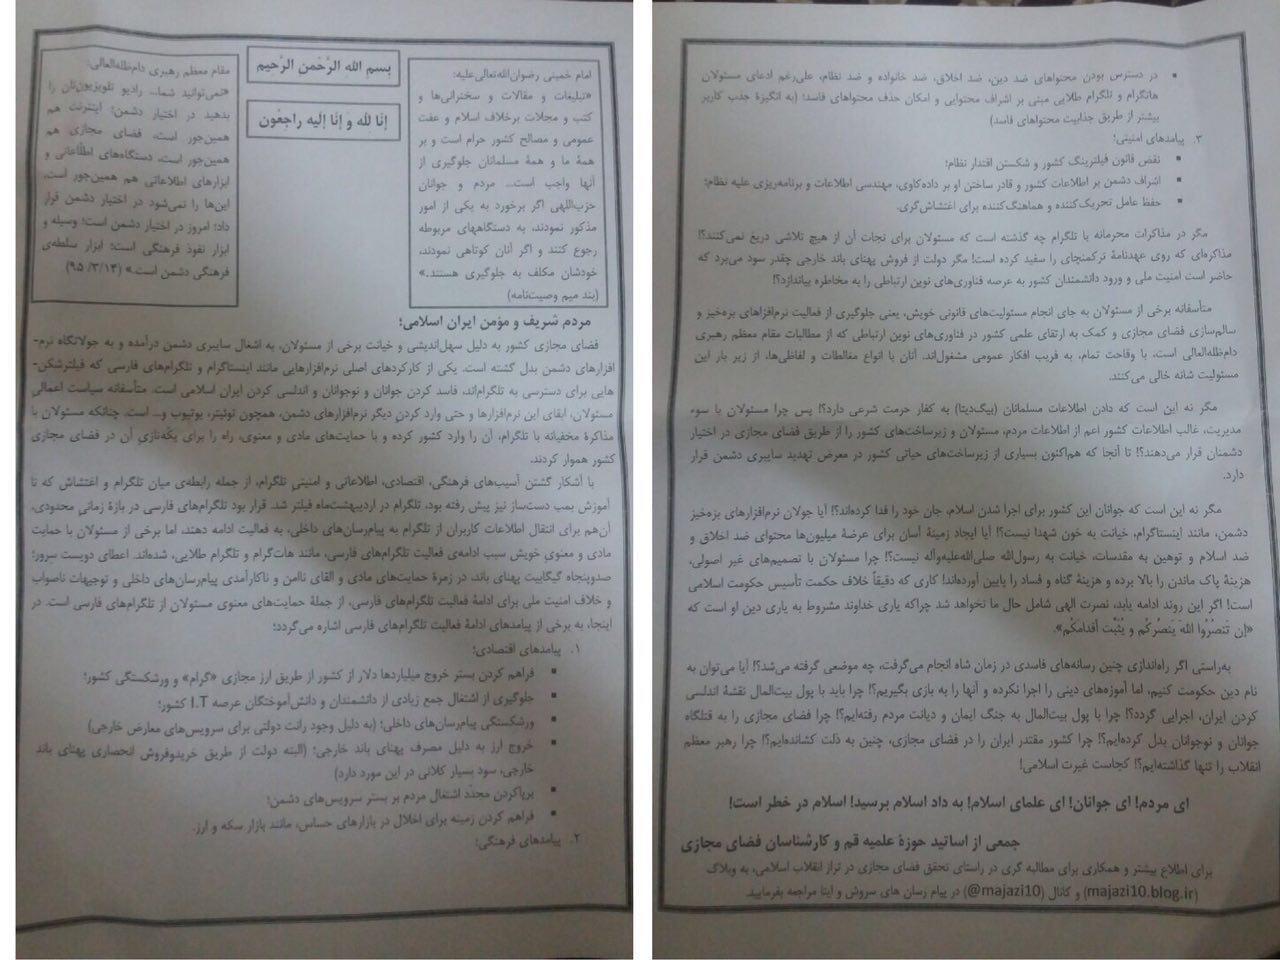 بسم الله الرَّحمن الرَّحیم
إنّا لله و إنّا إلیه راجعون
امام خمینی رضوان‌الله‌تعالی‌علیه:
«تبلیغات و مقالات و سخنرانی‌ها و
کتب و مجلات برخلاف اسلام و عفت
عمومی و مصالح کشور حرام است و بر
همهٔ ما و همهٔ مسلمانان جلوگیری از
آنها واجب است... مردم و جوانان
حزب‌اللهی اگر برخورد به یکی از امور
مذکور نمودند، به دستگاههای مربوطه
رجوع کنند و اگر آنان کوتاهی نمودند،
خودشان مکلف به جلوگیری هستند.»
(بند میم وصیت‌نامه)
مقام معظم رهبری دام‌ظله‌العالی:
«نمی‌توانید شما... رادیو تلویزیون‌تان را
بدهید در اختیار دشمن؛ اینترنت هم
همین‌جور است، فضای مجازی هم
همین‌جور است، دستگاه‌های اطلّاعاتی و
ابزارهای اطلاعاتی هم همین‌جور است،
این‌ها را نمی‌شود در اختیار دشمن قرار
داد؛ امروز در اختیار دشمن است؛ وسیله و
ابزار نفوذ فرهنگی است؛ ابزار سلطه‌ی
فرهنگی دشمن است.» (۹۵/۳/۱۴)
مردم شریف و مؤمن ایران اسلامی؛
فضای مجازی کشور به دلیل سهل‌اندیشی و خیانت برخی از مسئولان، به اشغال سایبری دشمن درآمده و به جولانگاه نرم-
افزارهای دشمن بدل گشته است. یکی از کارکردهای اصلی نرم‌افزارهایی مانند اینستاگرام و تلگرام‌های فارسی که فیلترشکن-
هایی برای دسترسی به تلگرام‌اند، فاسد کردن جوانان و نوجوانان و اندلسی کردن ایران اسلامی است. متأسفانه سیاست اعمالی
مسئولان، ابقای این نرم‌افزارها و حتی وارد کردن دیگر نرم‌افزارهای دشمن، همچون توئیتر، یوتیوب و... است. چنانکه مسئولان با
مذاکرهٔ مخفیانه با تلگرام، آن را وارد کشور کرده و با حمایت‌های مادی و معنوی، راه را برای یکّه‌تازی آن در فضای مجازی
کشور هموار کردند.
با آشکار گشتن آسیب‌های فرهنگی، اقتصادی، اطلاعاتی و امنیتی تلگرام، از جمله رابطه‌ی میان تلگرام و اغتشاش که تا
آموزش بمب دست‌ساز نیز پیش رفته بود، تلگرام در اردیبهشت‌ماه فیلتر شد. قرار بود تلگرام‌های فارسی در بازهٔ زمانی محدودی،
آن‌هم برای انتقال اطلاعات کاربران از تلگرام به پیام‌رسان‌های داخلی، به فعالیت ادامه دهند، اما برخی از مسئولان با حمایت
مادی و معنوی خویش سبب ادامه‌ی فعالیت تلگرام‌های فارسی، مانند هات‌گرام و تلگرام طلایی، شده‌اند. اعطای دویست سرور؛
صدوپنجاه گیگابیت پهنای باند، در زمرهٔ حمایت‌های مادی و القای ناامن و ناکارآمدی پیام‌رسان‌های داخلی و توجیهات ناصواب
و خلاف امنیت ملی برای ادامهٔ فعالیت تلگرام‌های فارسی، از جملهٔ حمایت‌های معنوی مسئولان از تلگرام‌های فارسی است. در
اینجا، به برخی از پیامدهای ادامهٔ فعالیت تلگرام‌های فارسی اشاره می‌گردد؛
۱. پیامدهای اقتصادی؛
▪ فراهم کردن بستر خروج میلیاردها دلار از کشور از طریق ارز مجازی «گرام» و ورشکستگی کشور؛
▪ جلوگیری از اشتغال جمع زیادی از دانشمندان و دانش‌آموختگان عرصه I.T کشور؛
▪ ورشکستگی پیام‌رسان‌های داخلی؛ (به دلیل وجود رانت دولتی برای سرویس‌های معارض خارجی)
▪ خروج ارز به دلیل مصرف پهنای باند خارجی؛ (البته دولت از طریق خریدوفروش انحصاری پهنای باند
خارجی، سود بسیار کلانی در این مورد دارد)
▪ برپاکردن مجدّد اشتغال مردم بر بستر سرویس‌های دشمن؛
▪ فراهم کردن زمینه برای اخلال در بازارهای حساس، مانند بازار سکه و ارز.
۲. پیامدهای فرهنگی؛
▪ در دسترس بودن محتواهای ضد دین، ضد اخلاق، ضد خانواده و ضد نظام، علی‌رغم ادعای مسئولان
هاتگرام و تلگرام طلایی مبنی بر اشراف محتوایی و امکان حذف محتواهای فاسد؛ (به انگیزهٔ جذب کاربر
بیشتر از طریق جذابیت محتواهای فاسد)
۳. پیامدهای امنیتی؛
▪ نقض قانون فیلترینگ کشور و شکستن اقتدار نظام؛
▪ اشراف دشمن بر اطلاعات کشور و قادر ساختن او بر داده‌کاوی، مهندسی اطلاعات و برنامه‌ریزی علیه نظام؛
▪ حفظ عامل تحریک‌کننده و هماهنگ‌کننده برای اغتشاش‌گری.
مگر در مذاکرات محرمانه با تلگرام چه گذشته است که مسئولان برای نجات آن از هیچ تلاشی دریغ نمی‌کنند؟!
مذاکره‌ای که روی عهدنامهٔ ترکمنچای را سفید کرده است! مگر دولت از فروش پهنای باند خارجی چقدر سود می‌برد که
حاضر است امنیت ملی و ورود دانشمندان کشور به عرصه فناوری‌های نوین ارتباطی را به مخاطره بیاندازد؟!
متأسفانه برخی از مسئولان به جای انجام مسئولیت‌های قانونی خویش، یعنی جلوگیری از فعالیت نرم‌افزاهای بزه‌خیز و
سالم‌سازی فضای مجازی و کمک به ارتقای علمی کشور در فناوری‌های نوین ارتباطی که از مطالبات مقام معظم رهبری
دام‌ظله‌العالی است، با وقاحت تمام، به فریب افکار عمومی مشغول‌اند. آنان با انواع مغالطات و لفاظی‌ها، از زیر بار این
مسئولیت شانه خالی می‌کنند.
مگر نه این است که دادن اطلاعات مسلمانان (بیگ‌دیتا) به کفار حرمت شرعی دارد؟! پس چرا مسئولان با سوء
مدیریت، غالب اطلاعات کشور اعم از اطلاعات مردم، مسئولان و زیرساخت‌های کشور را از طریق فضای مجازی در اختیار
دشمنان قرار می‌دهند؟! تا آنجا که هم‌اکنون بسیاری از زیرساخت‌های حیاتی کشور در معرض تهدید سایبری دشمن قرار
دارد.
مگر نه این است که جوانان این کشور برای اجرا شدن اسلام، جان خود را فدا کرده‌اند؟! آیا جولان نرم‌افزارهای بزه‌خیز
دشمن، مانند اینستاگرام، خیانت به خون شهدا نیست؟! آیا ایجاد زمینهٔ آسان برای عرضهٔ میلیون‌ها محتوای ضد اخلاق و
ضد اسلام و توهین به مقدسات، خیانت به رسول‌الله صلی‌الله‌علیه‌وآله نیست؟! چرا مسئولان با تصمیم‌های غیر اصولی،
هزینهٔ پاک ماندن را بالا برده و هزینهٔ گناه و فساد را پایین آورده‌اند! کاری که دقیقاً خلاف حکمت تأسیس حکومت اسلامی
است! اگر این روند ادامه یابد، نصرت الهی شامل حال ما نخواهد شد چراکه یاری خداوند مشروط به یاری دین او است که
«إن تَنصُرُوا اللهَ یَنصُرکُم و یُثَبِّت أقدامَکُم».
به‌راستی اگر راه‌اندازی چنین رسانه‌های فاسدی در زمان شاه انجام می‌گرفت، چه موضعی گرفته می‌شد؟! آیا می‌توان به
نام دین حکومت کنیم، اما آموزه‌های دینی را اجرا نکرده و آنها را به بازی بگیریم؟! چرا باید با پول بیت‌المال نقشهٔ اندلسی
کردن ایران، اجرایی گردد؟! چرا با پول بیت‌المال به جنگ ایمان و دیانت مردم رفته‌ایم؟! چرا فضای مجازی را به قتلگاه
جوانان و نوجوانان بدل کرده‌ایم؟! چرا کشور مقتدر ایران را در فضای مجازی، چنین به ذلت کشانده‌ایم؟! چرا رهبر معظم
انقلاب را تنها گذاشته‌ایم؟! کجاست غیرت اسلامی!
ای مردم! ای جوانان! ای علمای اسلام! به داد اسلام برسید! اسلام در خطر است!
جمعی از اساتید حوزهٔ علمیه قم و کارشناسان فضای مجازی
برای اطلاع بیشتر و همکاری برای مطالبه گری در راستای تحقق فضای مجازی در تراز انقلاب اسلامی، به وبلاگ
(majazi10.blog.ir) و کانال (@majazi10) در پیام رسان های سروش و ایتا مراجعه بفرمایید.